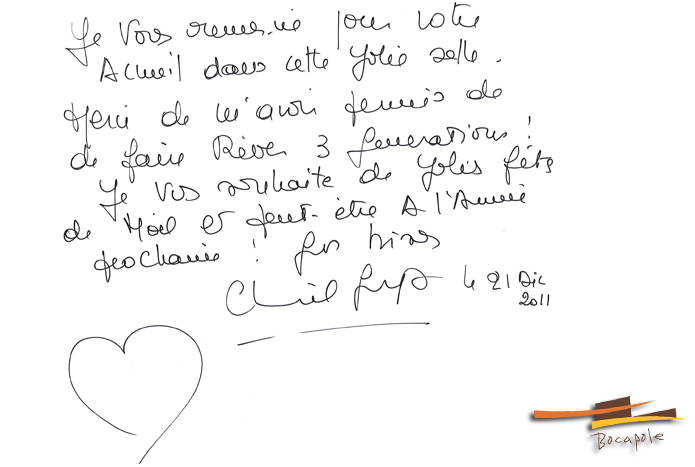 Je Vous remercie pour votre
Accueil dans cette Jolie salle.
Merci de m'avoir permis de
de faire Rêver 3 generations!
Je vous souhaite de Jolies fêtes
de Noël et peut-être A l'Année
prochaine! Gros bises
le 21 Dic
2011
Bocapole